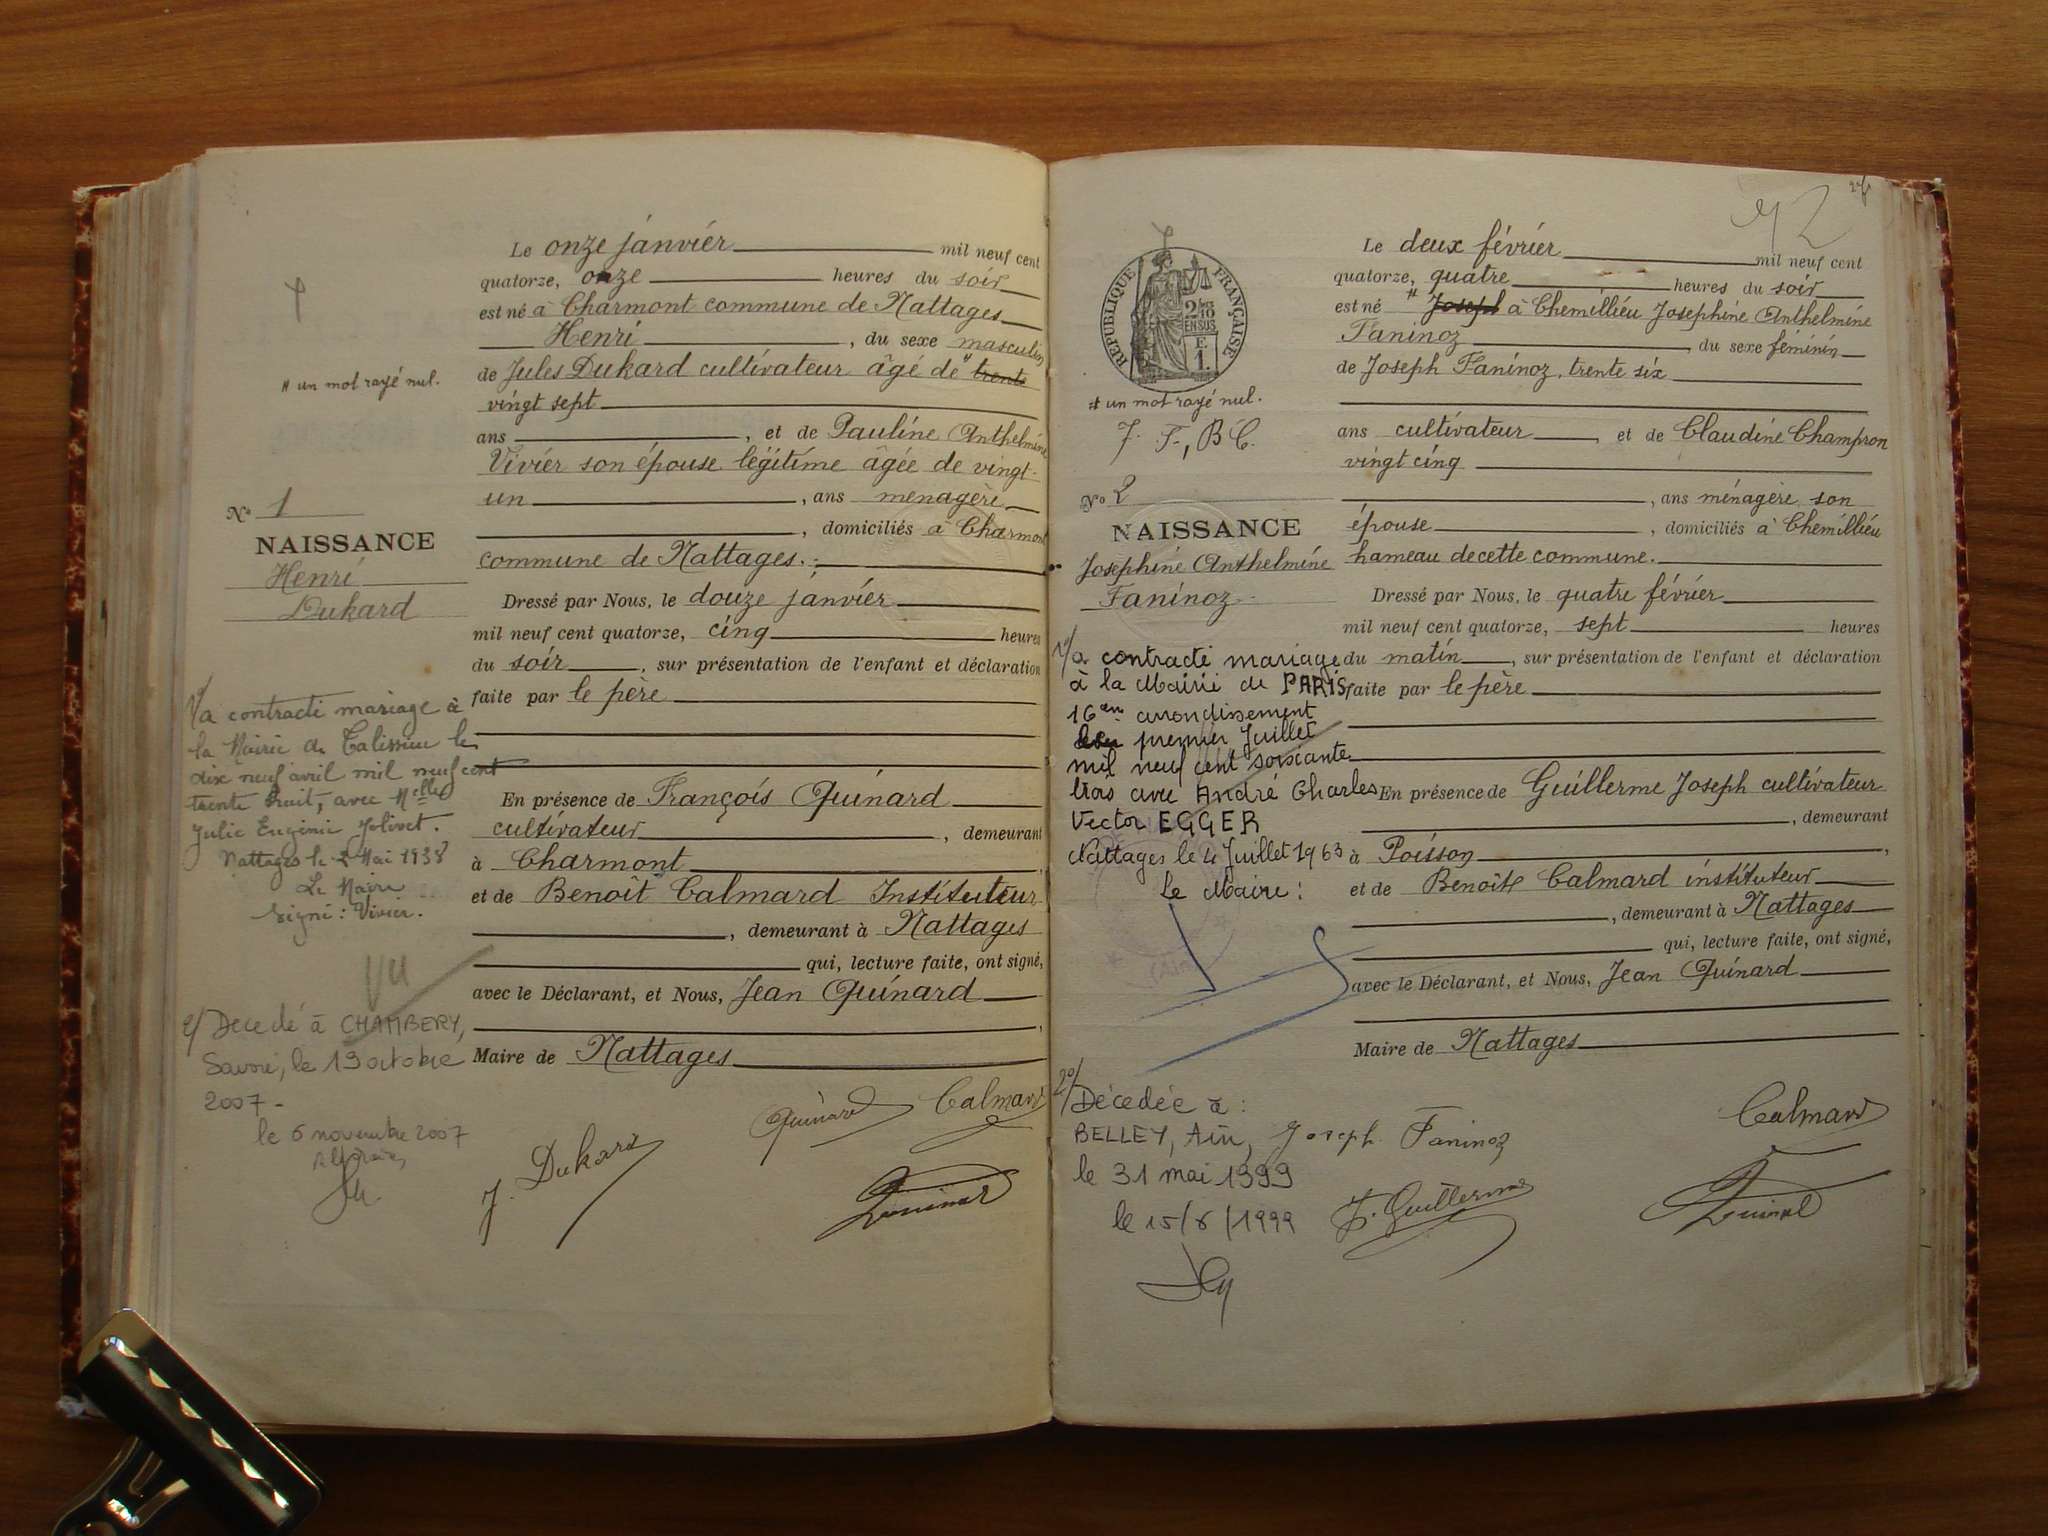 # un mot rayé nul.
Nº 1
NAISSANCE
Henri
Dukard
1/ a contracté mariage à
la Mairie de Talissieu le
dix neuf avril mil neuf cent
trente huit, avec Melle
Julie Eugénie Jolivet.
Nattages le 2 Mai 1938
Le Maire
Signé : Vivier.
Vu
2/ Decedé à CHAMBERY,
Savoie, le 19 octobre
2007 -
le 6 novembre 2007
Le onze janvier mil neuf cent
quatorze, onze heures du soir
est né à Charmont commune de Nattages
Henri , du sexe masculin
de Jules Dukard cultivateur âgé de # trente
vingt sept
ans , et de Pauline Anthelmine
Vivier son épouse légitime âgée de vingt-
un , ans menagère
, domiciliés à Charmont
commune de Nattages.
Dressé par Nous, le douze janvier
mil neuf cent quatorze, cinq heures
du soir , sur présentation de l'enfant et déclaration
faite par le père
En présence de François Quinard
cultivateur , demeurant
à Charmont ,
et de Benoît Calmard Instituteur
, demeurant à Nattages
qui, lecture faite, ont signé,
avec le Déclarant, et Nous, Jean Quinard
,
Maire de Nattages
Quinard Calmard
J. Dukard
Quinard
RÉPUBLIQUE FRANÇAISE
2/10
EN SUS
F.
1.
# un mot rayé nul.
J. F, B C.
Nº 2
NAISSANCE
Joséphine Anthelmine
Faninoz
1/ a contracté mariage
à la Mairie de PARIS
16em arrondissement
le premier Juillet
mil neuf cent soixante
trois avec André Charles
Victor EGGER
Nattages le 4 Juillet 1963
Le Maire :
2º/ Décédée à :
BELLEY, Ain,
le 31 mai 1999
le 15/6/1999
Le deux février mil neuf cent
quatorze, quatre heures du soir
est né # Joseph à Chemillieu Josephine Anthelmine
Faninoz , du sexe féminin
de Joseph Faninoz, trente six
ans cultivateur , et de Claudine Champron
vingt cinq
, ans ménagère son
épouse , domiciliés à Chemillieu
hameau de cette commune.
Dressé par Nous, le quatre février
mil neuf cent quatorze, sept heures
du matin , sur présentation de l'enfant et déclaration
faite par le père
En présence de Guillerme Joseph cultivateur
, demeurant
à Poisson ,
et de Benoît Calmard instituteur
, demeurant à Nattages
qui, lecture faite, ont signé,
avec le Déclarant, et Nous, Jean Quinard
Maire de Nattages
Calmard
Joseph Faninoz
J. Guillerme
Quinard